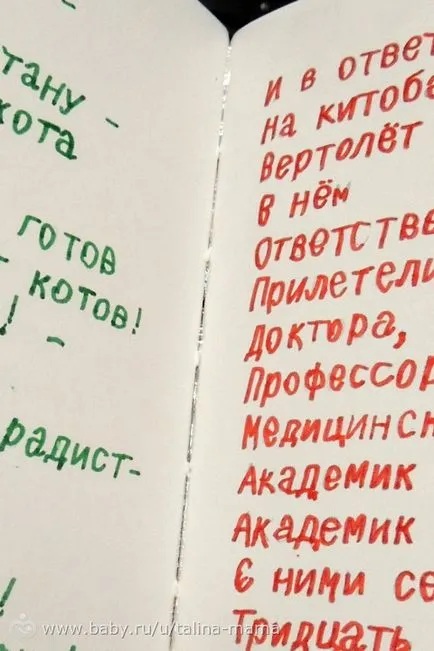 тану -
кота
готов
- котов!
! -
радист-
!
и в ответ
на китоба
Вертолёт
В нём
Ответстве
Прилетели
Доктора,
Профессор
Медицинск
Академик
Академик
С ними се
Тридцать
www.baby.ru/u/talina-mama